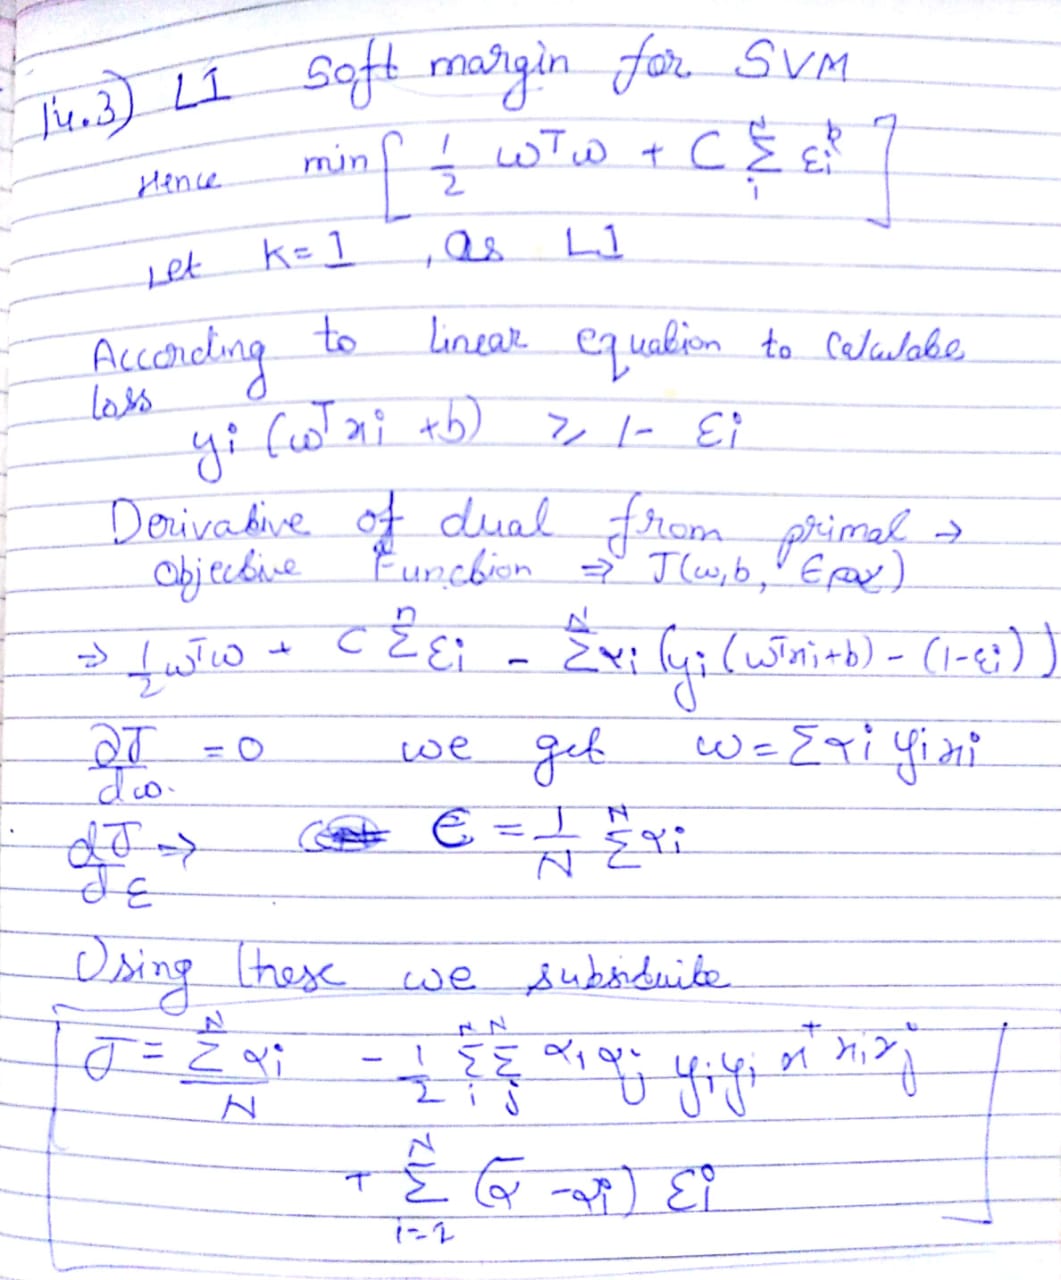 14.3) L1 Soft margin for SVM
Hence min [ 1/2 ωᵀω + C Σᵢᴺ εᵢᵏ ]
Let k=1 , as L1
According to linear equation to calculate
loss
yi (ωᵀxi +b) ≥ 1- εi
Derivative of dual from primal →
Objective Function ⇒ J(ω,b, ε,α)
⇒ 1/2 ωᵀω + C Σⁿ εi - Σᴺ αi (yi (ωᵀxi+b) - (1-εi))
∂J/dω. =0 we get ω = Σαi yi xi
dJ/dε ⇒ Є = 1/N Σᴺ αi
Using these we subsiduite
J = Σᴺ αi/N - 1/2 Σᵢᴺ Σⱼᴺ αi αj yi yi xᵀ xi xj
+ Σᴺ i=1 (α̅ -αi) εi